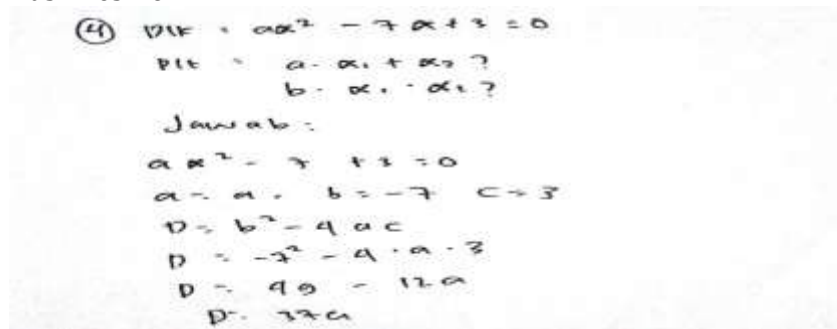 ④ Dik : ax² - 7x + 3 = 0
Dit : a. x₁ + x₂ ?
b. x₁ · x₂ ?
Jawab :
ax² - 7 + 3 = 0
a = a, b = -7 c = 3
D = b² - 4ac
D = -7² - 4 · a · 3
D = 49 - 12a
D = 37a